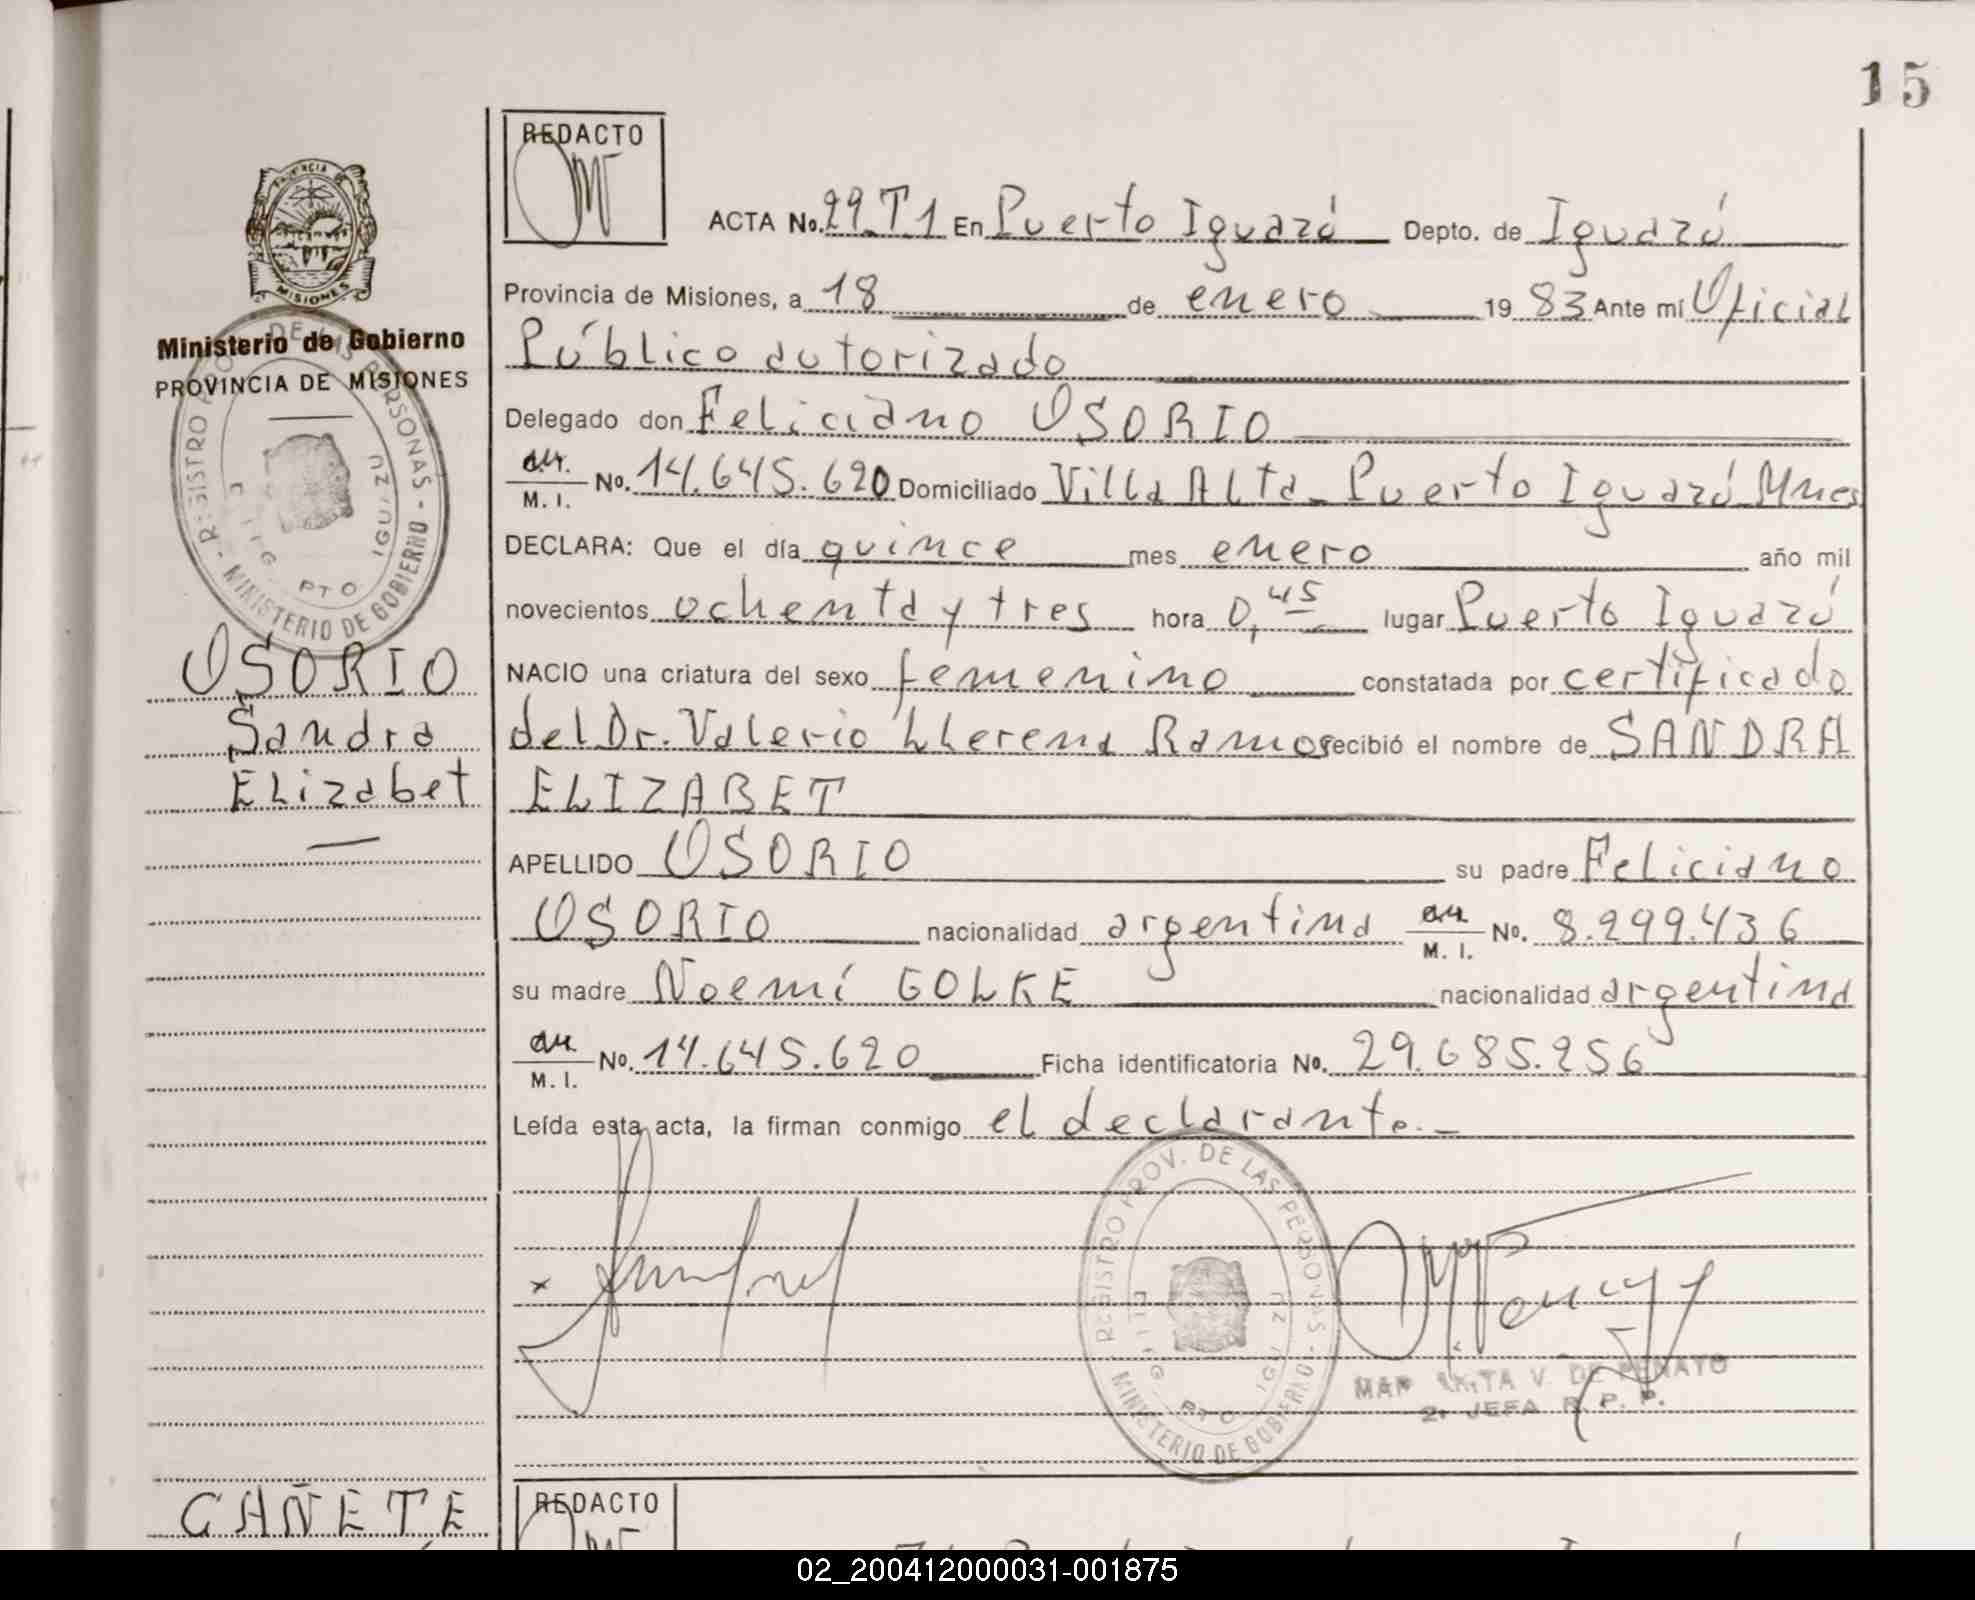 15
REDACTO
ACTA No. 29.T1 En Puerto Iguazú Depto. de Iguazú
PROVINCIA
MISIONES
Provincia de Misiones, a 18 de enero 1983 Ante mí Oficial
Ministerio de Gobierno
Público autorizado
PROVINCIA DE MISIONES
Delegado don Feliciano OSORIO
M. I. No. 14.645.620 Domiciliado Villa Alta - Puerto Iguazú Mnes
DECLARA: Que el día quince mes enero año mil
novecientos ochenta y tres hora 0,45 lugar Puerto Iguazú
REGISTRO DE LAS PERSONAS - MINISTERIO DE GOBIERNO
PTO. IGUAZU
OSORIO
NACIO una criatura del sexo femenino constatada por certificado
Sandra
del Dr. Valerio Llerena Ramos recibió el nombre de SANDRA
Elizabet
ELIZABET
APELLIDO OSORIO su padre Feliciano
OSORIO nacionalidad argentina M. I. No. 8.299.436
su madre Noemí GOLKE nacionalidad argentina
M. I. No. 14.645.620 Ficha identificatoria No. 29.685.256
Leída esta acta, la firman conmigo el declarante.-
REGISTRO PROV. DE LAS PERSONAS - MINISTERIO DE GOBIERNO
PTO. IGUAZU
V. DE PENAYO
JEFA R. P. P.
CAÑETE
REDACTO
02_200412000031-001875